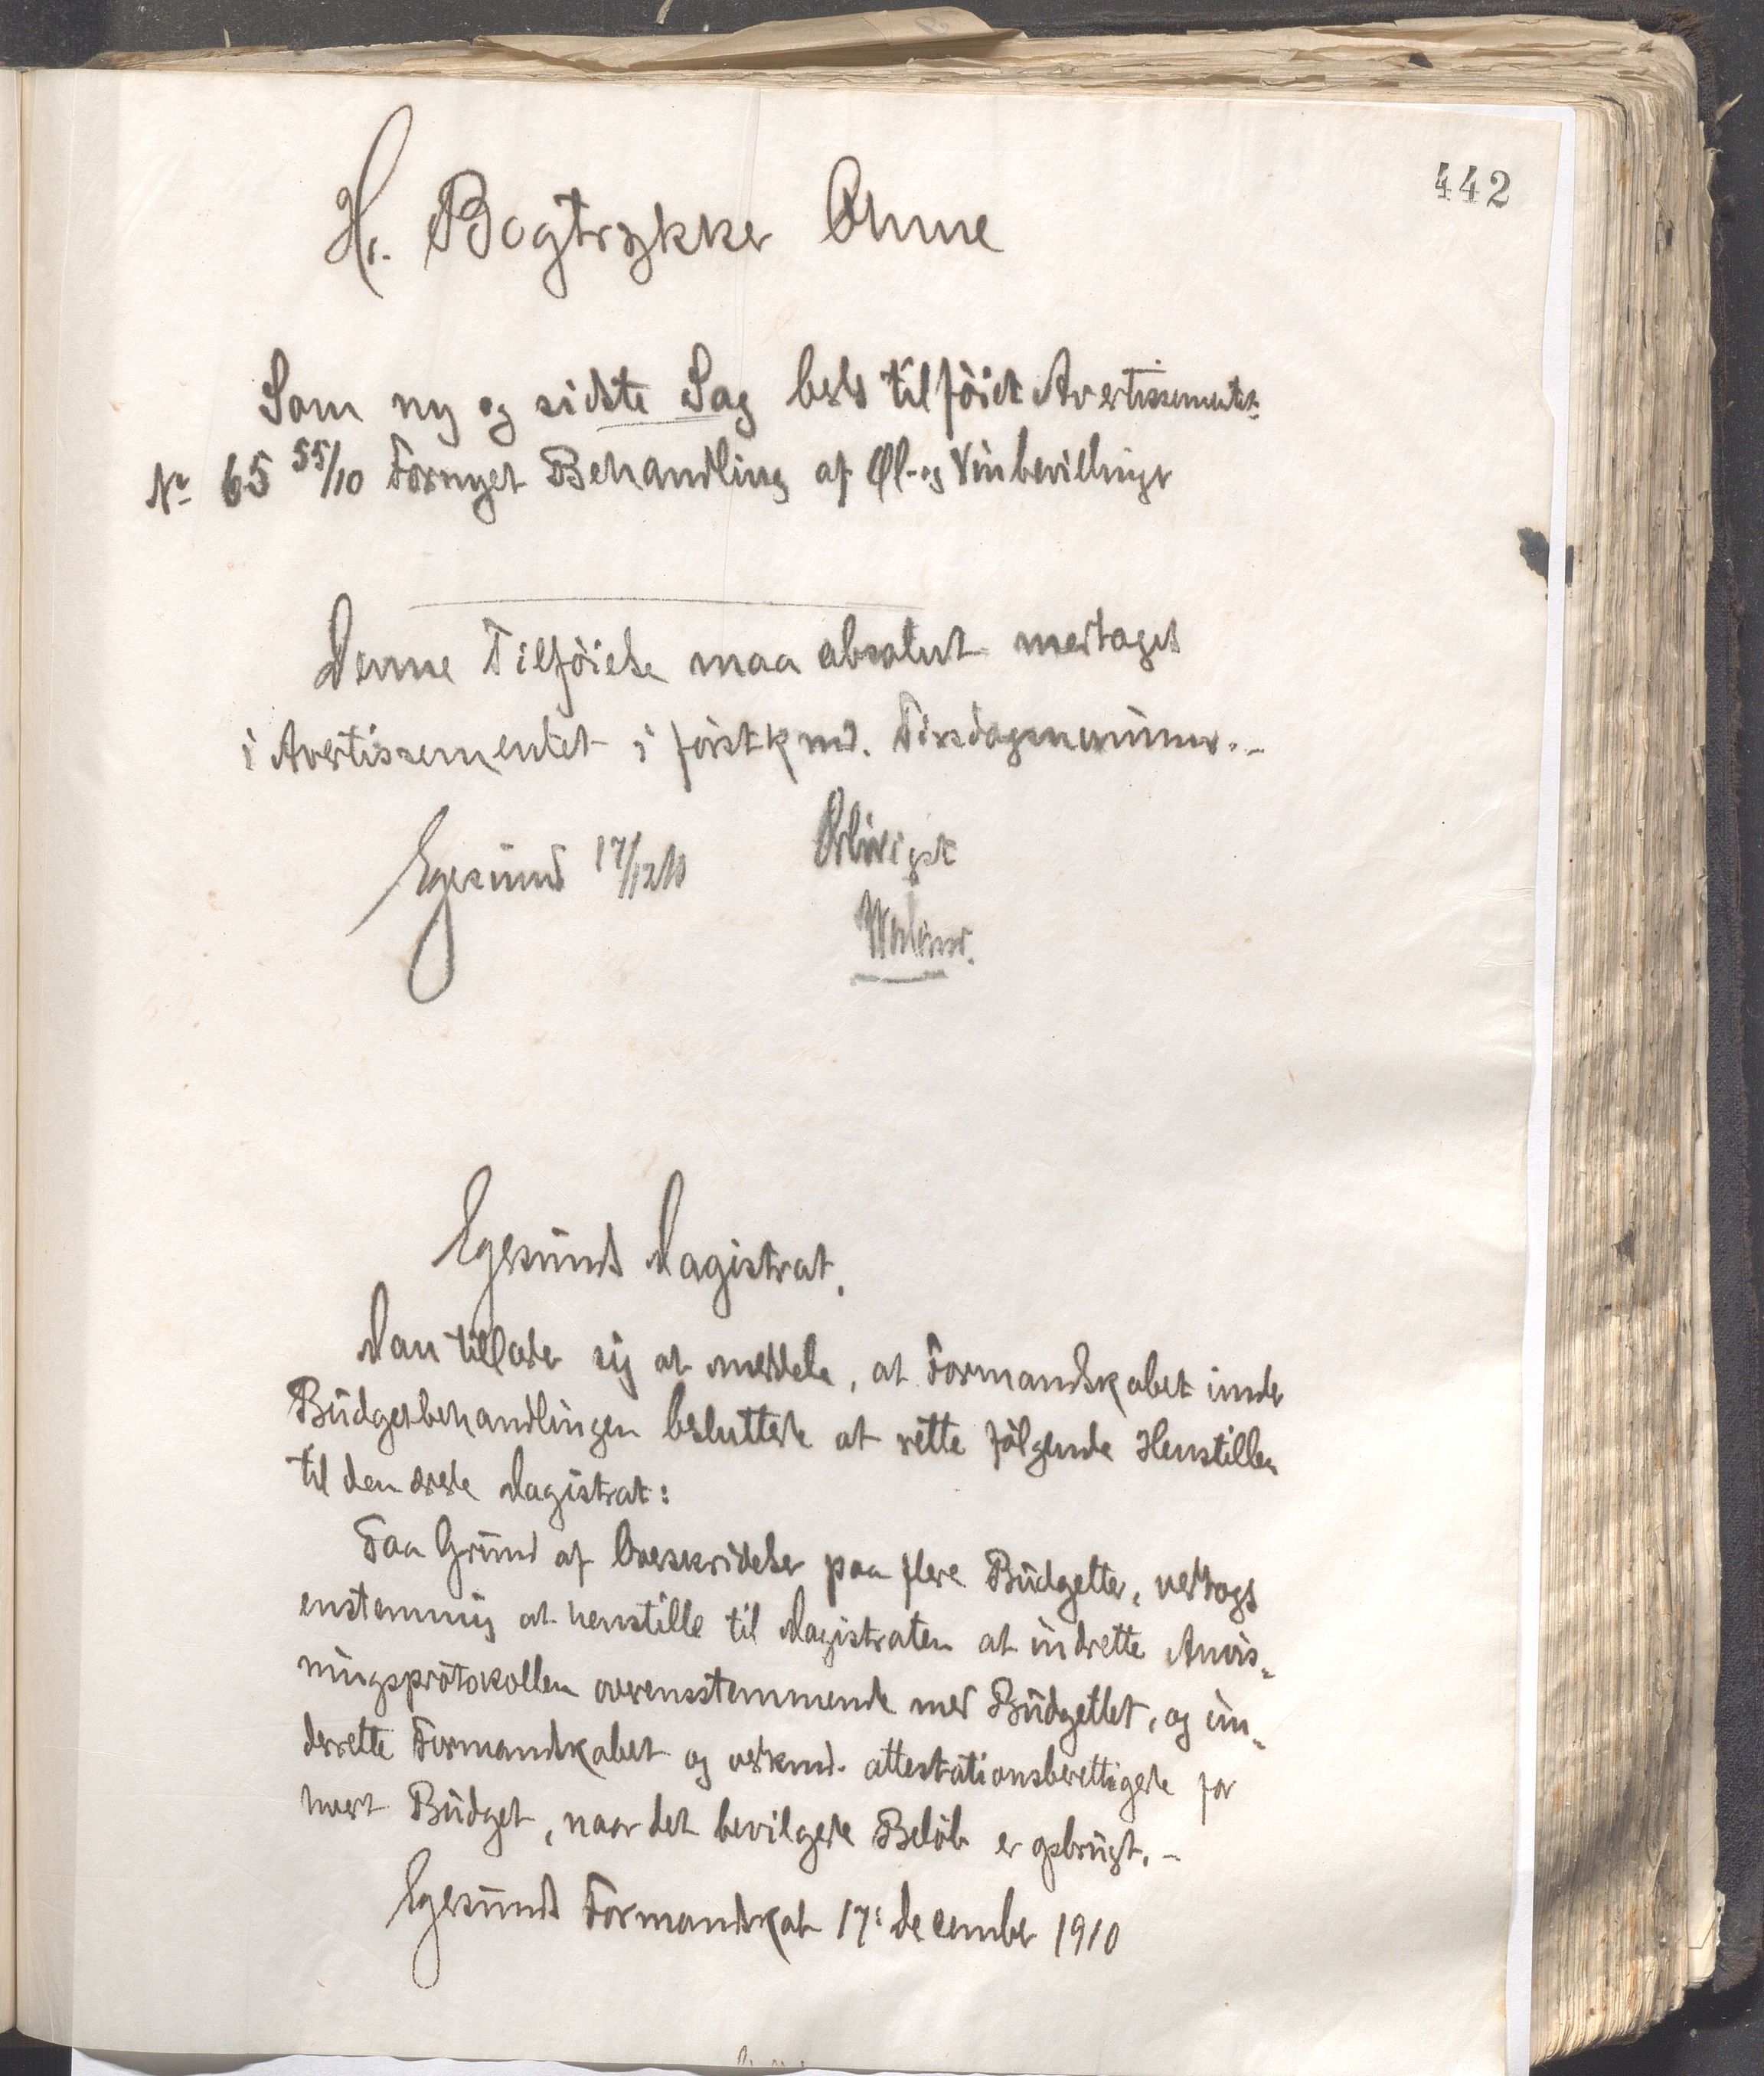 442
Hr. Bogtrykker Aune
Som ny og sidste Sag bedes tilføiet Avertissementet
No 65 55/10 Fornyet Behandling af Øl- og Vinbevillinger
Denne Tilføielse maa absolut medtages
i Avertissementet i førstkmd. Tirsdagsnummer.-
Egersund 17/12 10 Ærbødigst
Egersunds Magistrat.
Man tillader sig at meddele, at Formandskabet under
Budgetbehandlingen besluttede at rette følgende Henstillen
til den ærede Magistrat:
Paa Grund af Overskridelser paa flere Budgetter, vedtoges
enstemmig at henstille til Magistraten at indrette Anvis-
ningsprotokollen overensstemmende med Budgettet, og un-
derrette Formandskabet og vedkmd. attestationsberettigede for
hvert Budget, naar det bevilgede Beløb er opbrugt.-
Egersunds Formandskab 17: December 1910